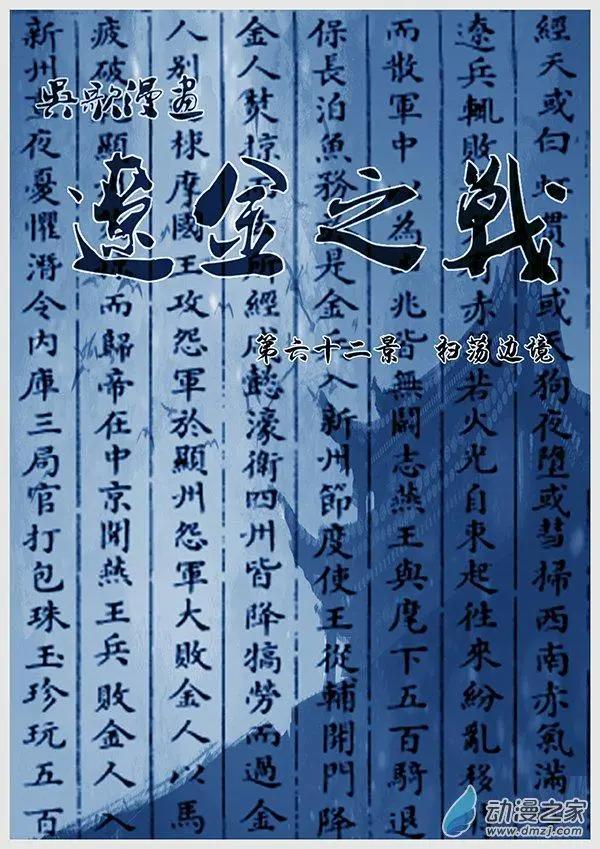 吳歌漫畫
遼金之戰
第六十二景 扫荡边境
經天或白虹貫日或天狗夜墮或彗掃西南赤氣滿
遼兵輒敗赤若火光自東起往來紛亂移
而散軍中以為兆皆無鬪志燕王與麾下五百騎退
保長泊魚務是金入新州節度使王從輔開門降
金人焚掠所經成懿濠衛四州皆降犒勞而過金
人別棣摩國王攻怨軍於顯州怨軍大敗金人以馬
疲破顯而歸帝在中京聞燕王兵敗金人入
新州夜憂懼潛令內庫三局官打包珠玉珍玩五百
动漫之家
www.dmzj.com